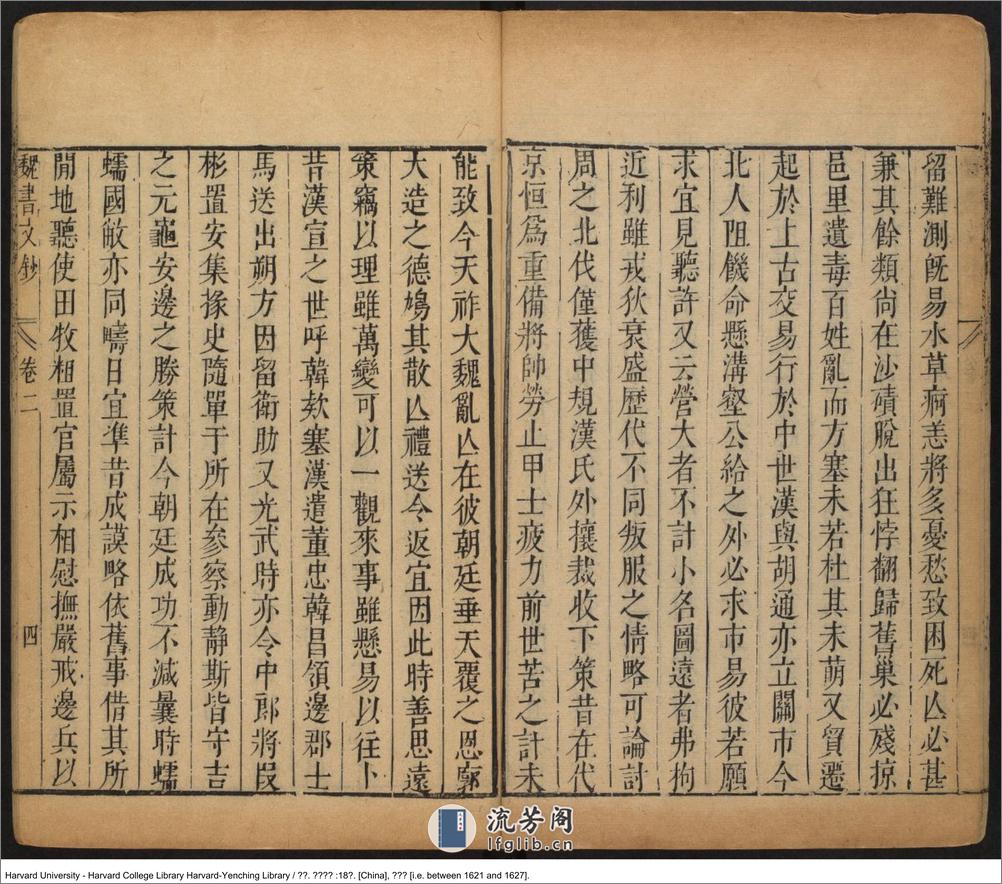 留難測既易水草痾恙將多憂愁致困死亾必甚
兼其餘類尚在沙磧脫出狂悖翻歸舊巢必殘掠
邑里遺毒百姓亂而方塞未若杜其未萌又貿遷
起於上古交易行於中世漢與胡通亦立關市今
北人阻饑命懸溝壑公給之外必求市易彼若願
求宜見聽許又云營大者不計小名圖遠者弗拘
近利雖戎狄衰盛歷代不同叛服之情略可論討
周之北伐僅獲中規漢氏外攘裁收下策昔在代
京恒爲重備將帥勞止甲士疲力前世苦之計未
能致今天祚大魏亂亾在彼朝廷垂天覆之恩廓
大造之德鳩其散亾禮送令返宜因此時善思遠
策竊以理雖萬變可以一觀來事雖懸易以往卜
昔漢宣之世呼韓欵塞漢遣董忠韓昌領邊郡士
馬送出朔方因留衛助又光武時亦令中郎將段
彬置安集掾史隨單于所在參察動靜斯皆守吉
之元龜安邊之勝策計今朝廷成功不減曩時蠕
蠕國敝亦同疇日宜準昔成謨略依舊事借其所
閒地聽使田牧粗置官屬示相慰撫嚴戒邊兵以
魏書文鈔 卷二 四
流芳阁
lfglib.cn
Harvard University - Harvard College Library Harvard-Yenching Library / ??. ???? :18?. [China], ??? [i.e. between 1621 and 1627].